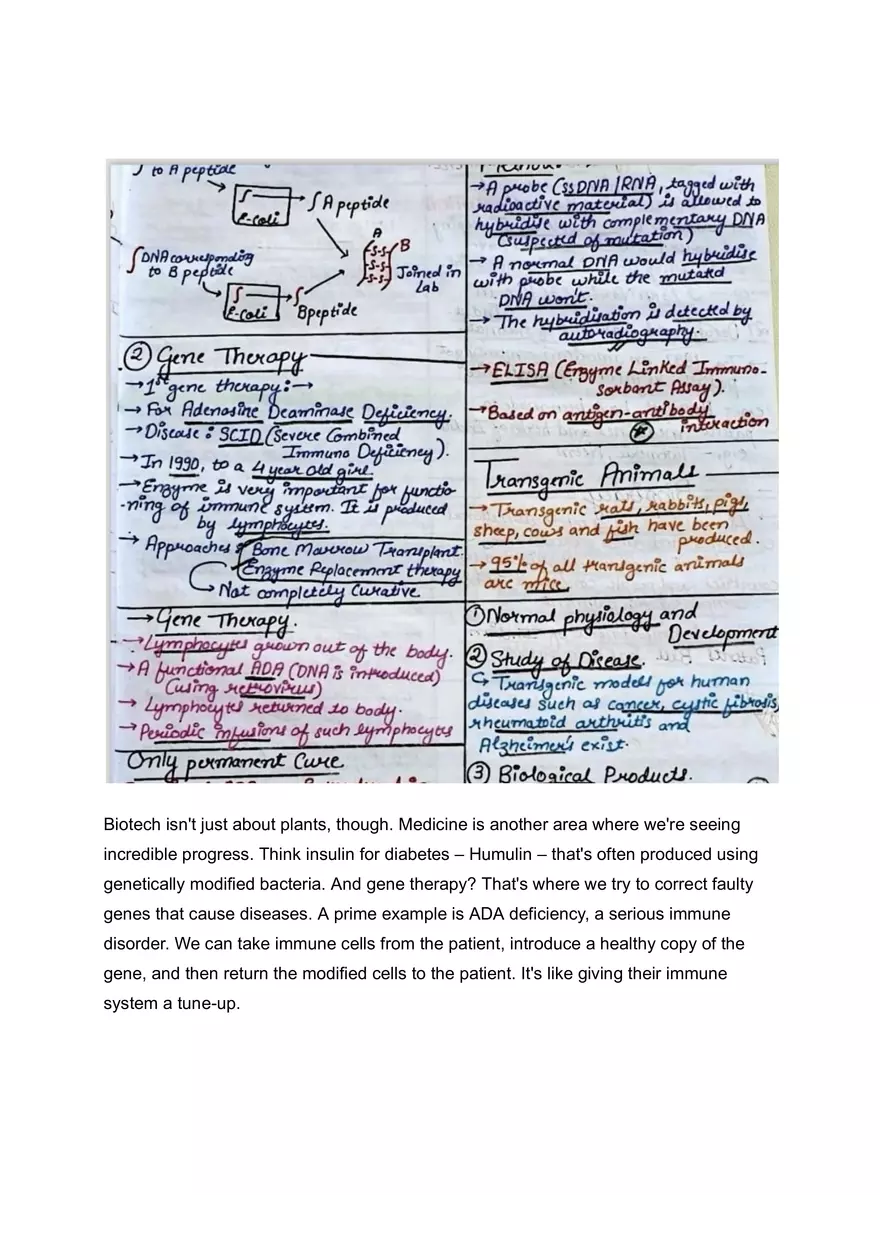 ∫ to A peptide
E-coli
∫ A peptide
∫ DNA corresponding
to B peptide
E-coli
B peptide
A
B
S-S
S-S
S-S
Joined in
Lab
② Gene Therapy
→ 1st gene therapy :→
→ For Adenosine Deaminase Deficiency.
→ Disease : SCID (Severe Combined
Immuno Deficiency).
→ In 1990, to a 4 year old girl.
→ Enzyme is very important for functio-
-ning of immune system. It is produced
by lymphocytes.
→ Approaches Bone Marrow Transplant.
Enzyme Replacement therapy
→ Not completely Curative
→ Gene Therapy.
→ Lymphocytes grown out of the body.
→ A functional ADA (DNA is introduced)
(using retrovirus)
→ Lymphocytes returned to body.
→ Periodic infusions of such lymphocytes
Only permanent Cure
→ A probe (ssDNA/RNA, tagged with
radioactive material) is allowed to
hybridise with complementary DNA
(suspected of mutation)
→ A normal DNA would hybridise
with probe while the mutated
DNA won't.
→ The hybridisation is detected by
autoradiography.
→ ELISA (Enzyme Linked Immuno-
Sorbant Assay).
→ Based on antigen-antibody
interaction
Transgenic Animals
→ Transgenic rats, rabbits, pigs,
sheep, cows and fish have been
produced.
→ 95% of all transgenic animals
are mice.
① Normal physiology and
Development
② Study of Disease.
↳ Transgenic models for human
diseases such as cancer, cystic fibrosis,
rheumatoid arthritis and
Alzheimer's exist.
③ Biological Products.
Biotech isn't just about plants, though. Medicine is another area where we're seeing
incredible progress. Think insulin for diabetes – Humulin – that's often produced using
genetically modified bacteria. And gene therapy? That's where we try to correct faulty
genes that cause diseases. A prime example is ADA deficiency, a serious immune
disorder. We can take immune cells from the patient, introduce a healthy copy of the
gene, and then return the modified cells to the patient. It's like giving their immune
system a tune-up.